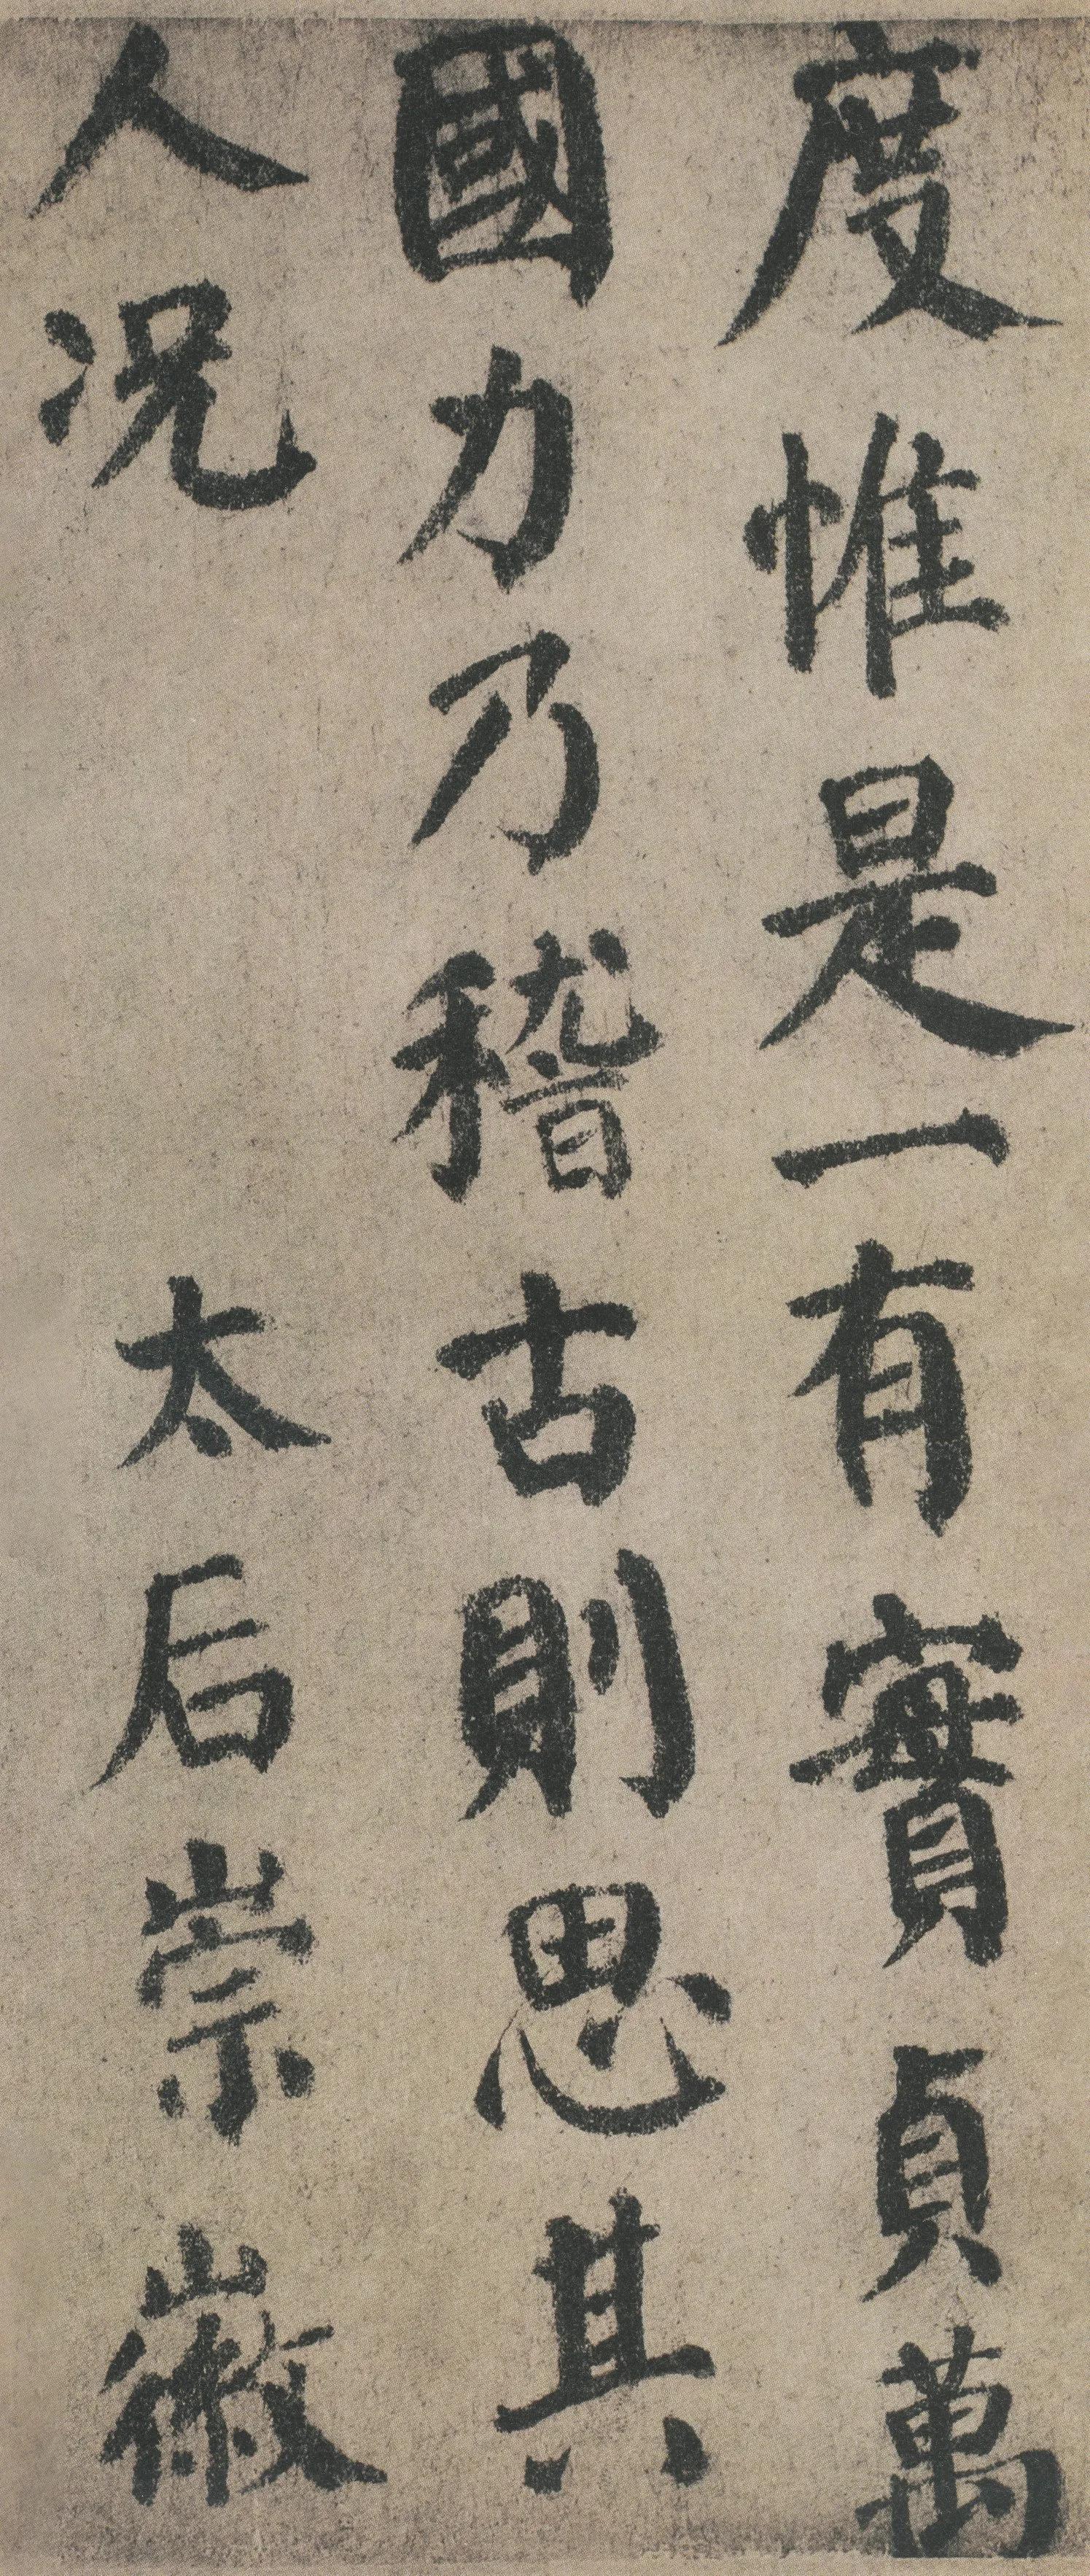 度惟是一有實貞萬
國力乃稽古則思其
人况 太后崇徽